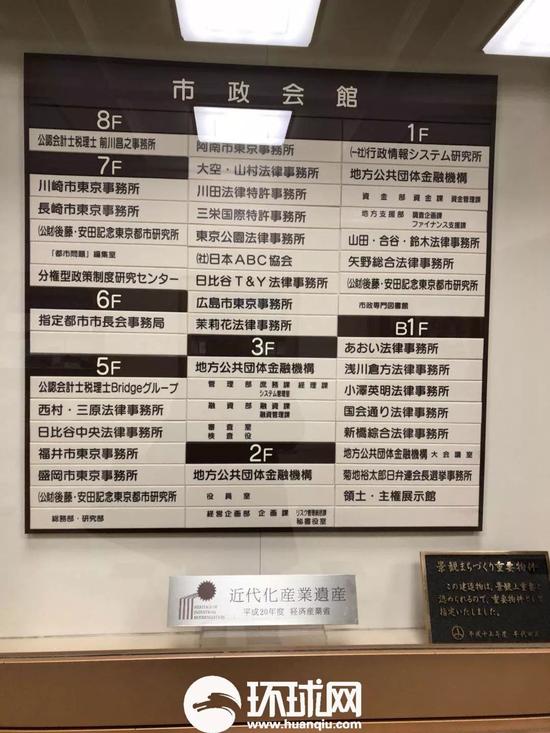 市政会館
8F
公認会計士税理士 前川昌之事務所
7F
川崎市東京事務所
長崎市東京事務所
(公財)後藤・安田記念東京都市研究所
「都市問題」編集室
分権型政策制度研究センター
6F
指定都市市長会事務局
5F
公認会計士税理士Bridgeグループ
西村・三原法律事務所
日比谷中央法律事務所
福井市東京事務所
盛岡市東京事務所
(公財)後藤・安田記念東京都市研究所
総務部・研究部
阿南市東京事務所
大空・山村法律事務所
川田法律特許事務所
三栄国際特許事務所
東京公園法律事務所
(社)日本ABC協会
日比谷T&Y法律事務所
広島市東京事務所
茉莉花法律事務所
3F
地方公共団体金融機構
管理部 庶務課 経理課
システム管理室
融資部 融資課
融資管理課
審査室
検査役
2F
地方公共団体金融機構
役員室
経営企画部 企画課 リスク管理統括課
秘書役室
1F
(一社)行政情報システム研究所
地方公共団体金融機構
資金部 資金課 資金管理課
地方支援部 調査企画課
ファイナンス支援課
山田・合谷・鈴木法律事務所
矢野総合法律事務所
(公財)後藤・安田記念東京都市研究所
市政専門図書館
B1F
あおい法律事務所
浅川倉方法律事務所
小澤英明法律事務所
国会通り法律事務所
新橋綜合法律事務所
地方公共団体金融機構 大会議室
菊地裕太郎日弁連会長選挙事務所
領土・主権展示館
HERITAGE OF INDUSTRIAL MODERNIZATION
近代化産業遺産
平成20年度 経済産業省
景観まちづくり重要物件
この建造物は、景観上重要と
認められるので、重要物件として
指定いたしました。
平成十五年度 千代田区
环球网
www.huanqiu.com